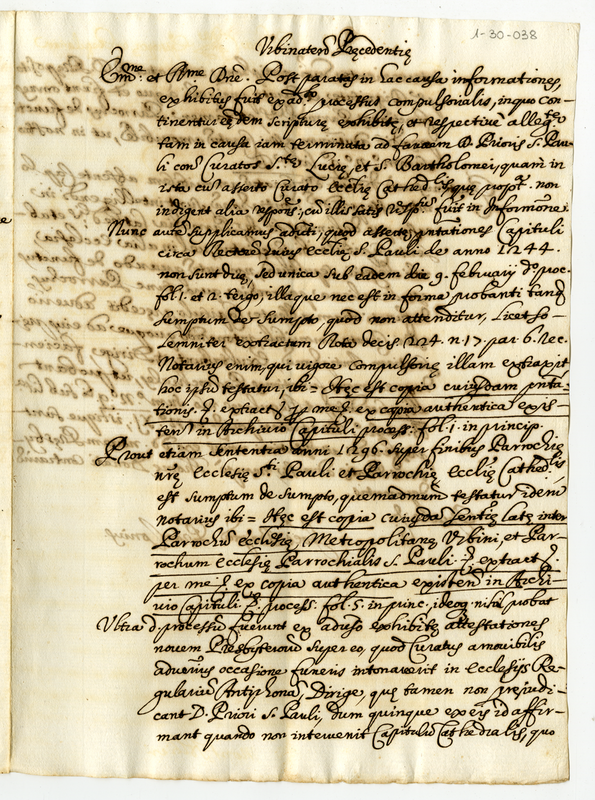 1-30-038
Urbinaten Precedentię
Emme et Rme Dne. Post paratas in hac causa informationes,
exhibitus fuit ex adto processus compulsorialis, in quo con-
tinentur eędem scripturę exhibitę, et respective allegtę
tam in causa iam terminata ad favorem D. Prioris S. Pau-
li con Curatos S.tę Lucię, et S. Bartholomei, quam in
ista cum asserto Curato Ecclię Cathedlis, quę propt. non
indigent alia respone, cum illis satis respm fuit in Informone.
Nunc autem supplicamus adverti, quod assertę pntationes Capituli
circa Rectorem huius Ecclię S. Pauli de anno 1244.
non sunt duę, sed unica sub eadem die 9. februarij do proc.
fol. 1. et 2. tergo, illaque nec est in forma probanti tanq
sumptum de sumpto, quod non attenditur, licet so-
lemniter extractum Rota decis. 224. n. 17. par. 6. rec.
Notarius enim, qui vigore compulsorię illam extraxit
hoc ipsum testatur, ibi = Hęc est copia cuiusdam pnta-
tionis & extract & per me & ex copia authentica exis-
ten in Archivio Capituli process. fol. 1. in princip.
Prout etiam sententia anni 1296. super finibus Parrochię
nrę Ecclesię Sti Pauli et Parrochię Ecclię Cathedlis
est sumptum de sumpto, quemadmodum testatur idem
notarius ibi = Hęc est copia cuiusdam sentię latę inter
Parrochum Ecclesię Metropolitanę Urbini, et Par-
rochum Ecclesię Parrochialis S. Pauli & extract &
per me & ex copia authentica existen in Archi-
vio Capituli & process. fol. 5. in princ. ideoq nihil probat
Ultra d. processum fuerunt ex adverso exhibitę attestationes
novem Presbyterorum super eo, quod Curatus amovibilis
adversus occasione funeris intonaverit in Ecclesijs Re-
gularium Antiphonam, Dirige, quę tamen non pręjudi-
cant D. Priori S. Pauli, dum quinque ex eis id affir-
mant quando non intervenit Capitulum Cathedralis, quo